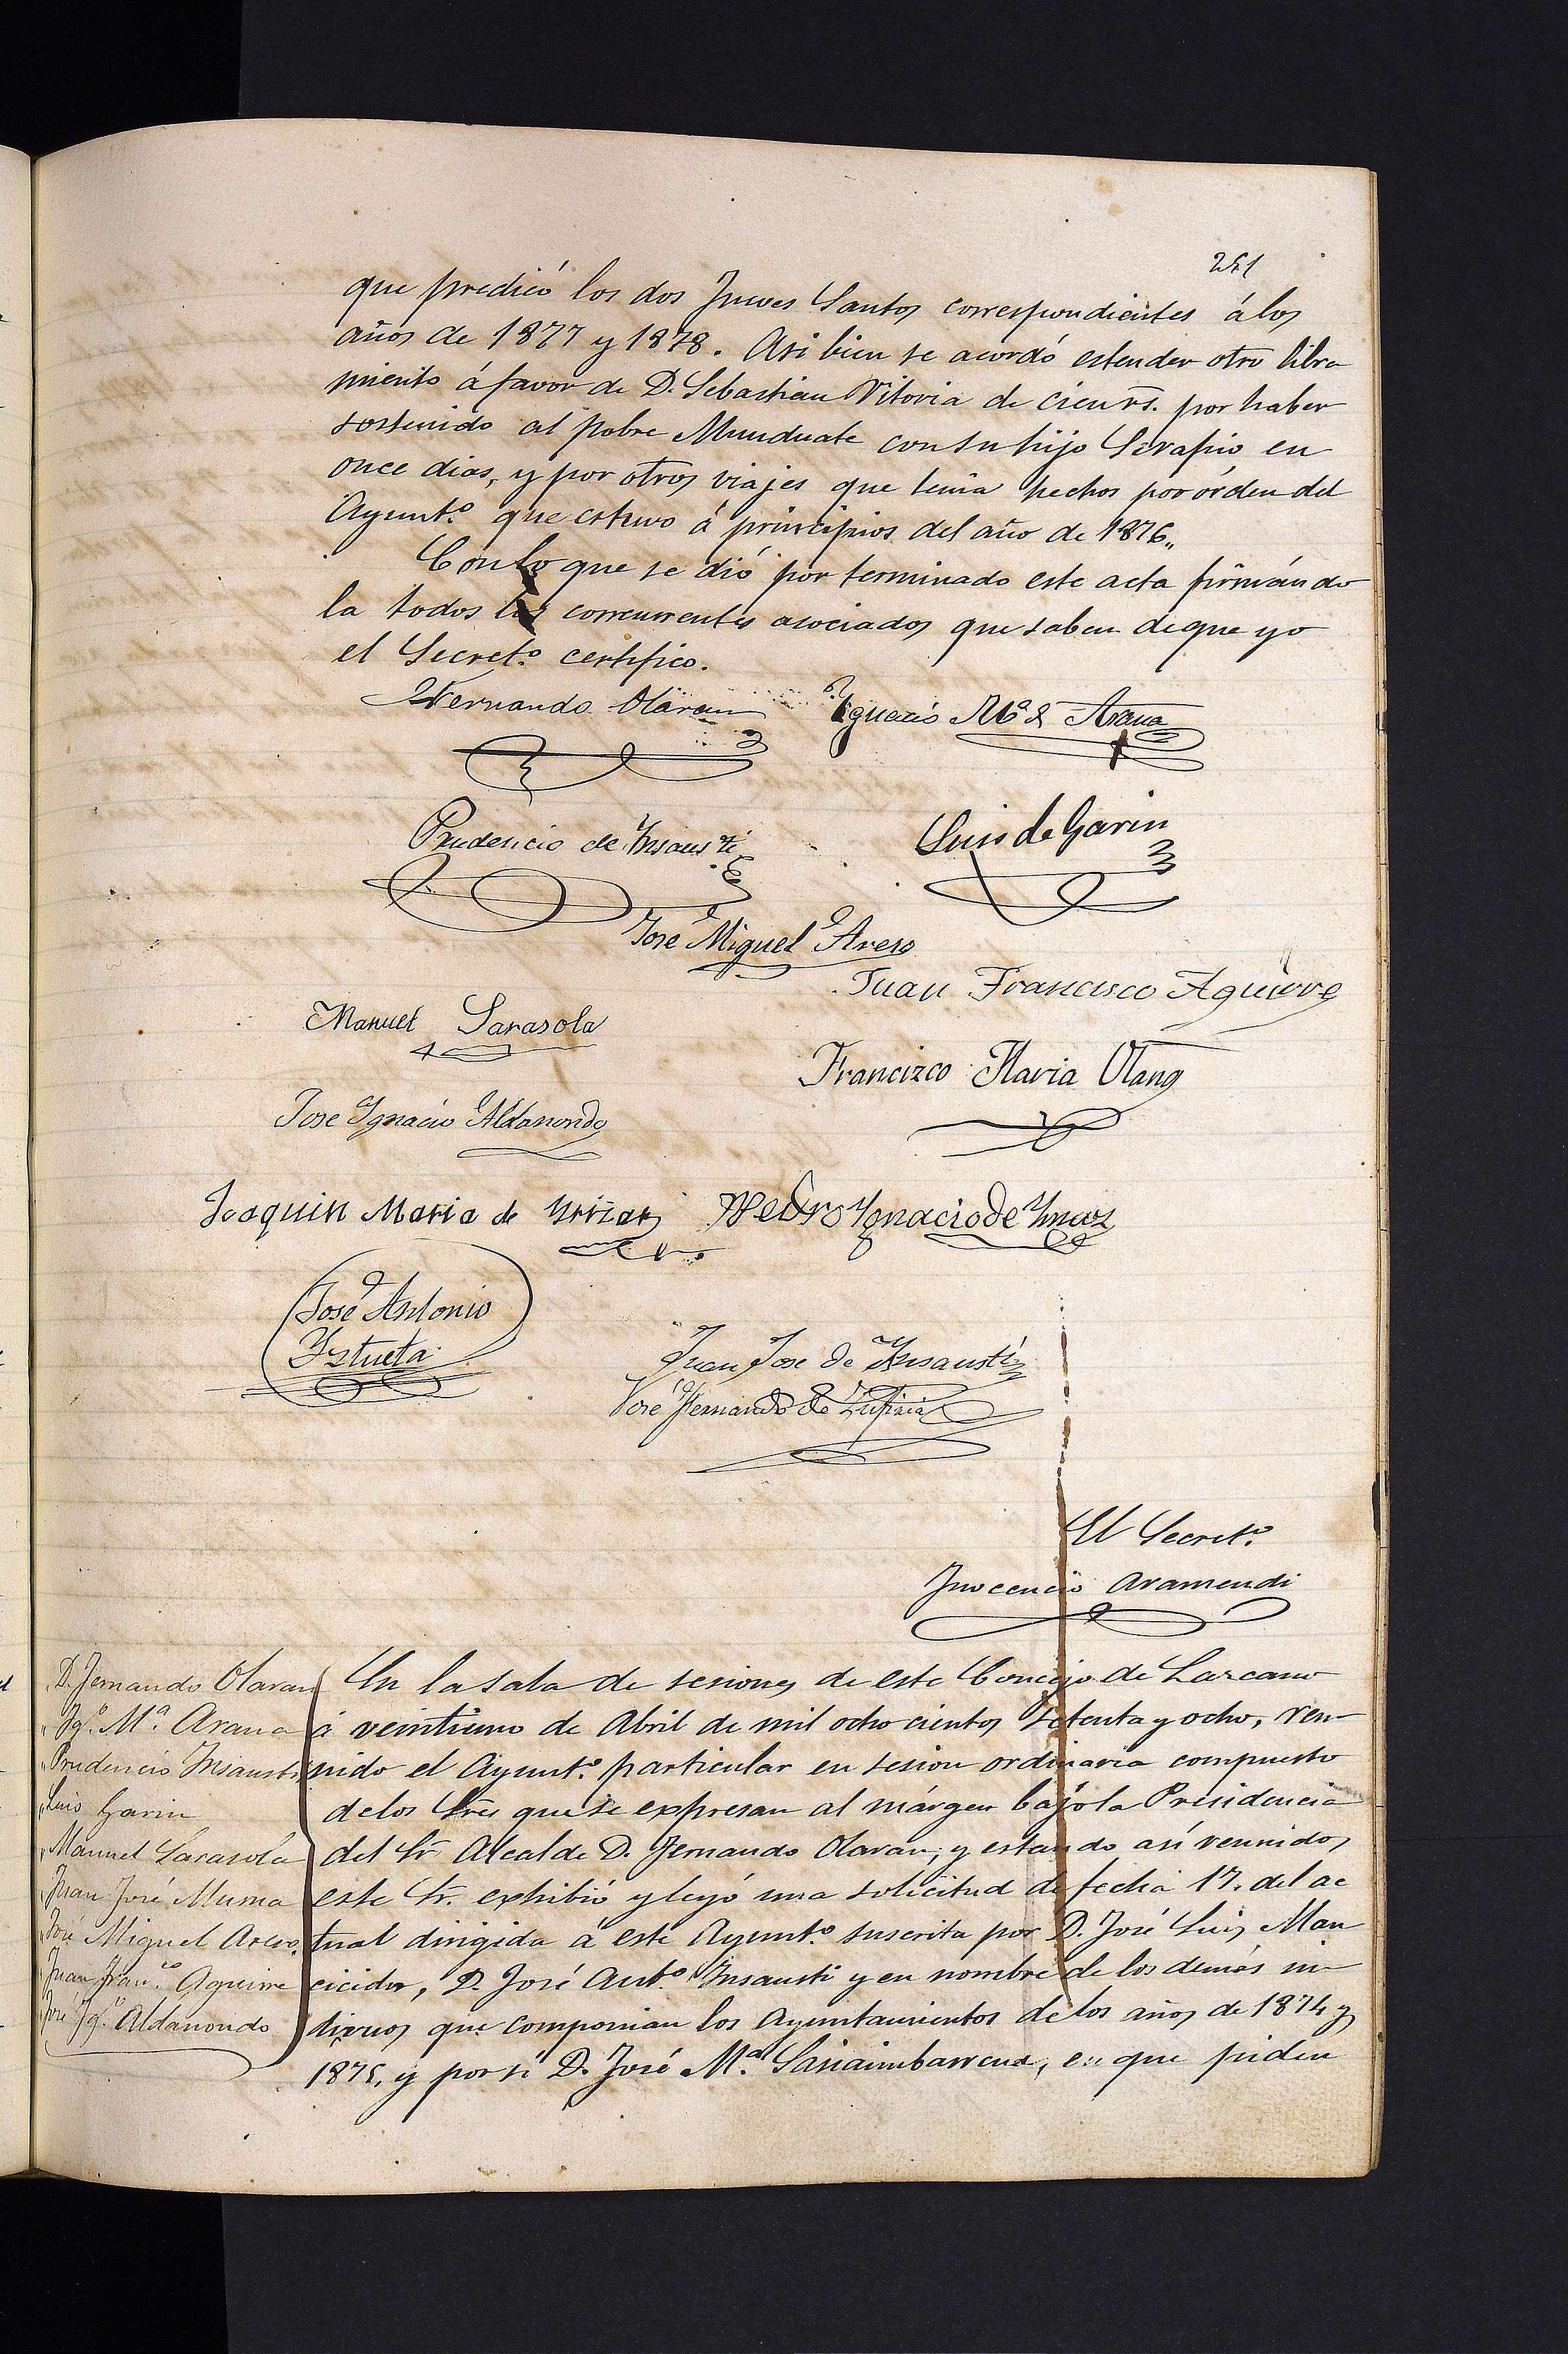 251
que predicó los dos Jueves Santos correspondientes á los
años de 1877 y 1878. Asi bien se acordó estender otro libra
miento á favor de D. Sebastian Vitoria de cien rs. por haber
sostenido al pobre Munduate con su hijo Serapio en
once dias, y por otros viajes que tenia hechos por órden del
Ayunt.º que estuvo á principios del año de 1876.,
Con lo que se dió por terminado este acta firmándo
la todos los concurrentes asociados que saben de que yo
el Secret.º certifico.
Fernando Olaran
Ignacio Mª de Arana
Prudencio de Insausti
Luis de Garin
José Miguel Areso
Juan Francisco Aguirre
Manuel Sarasola
Francizco Maria Olano
Jose Ignacio Aldanondo
Joaquin Maria de Yrizar
Pedro Ygnacio de Ymaz
José Antonio
Iztueta
Juan Jose de Insausti
José Fernando de
El Secret.º
Inocencio Aramendi
D. Fernando Olaran
" Ig.º M.ª Arana
" Prudencio Insausti
" Luis Garin
" Manuel Sarasola
" Juan José Muma
" José Miguel Areso
" Juan Fran.co Aguirre
" José Ig.º Aldanondo
En la sala de sesiones de este Concejo de Lazcano
á veintiuno de Abril de mil ochocientos setenta y ocho, reu-
nido el Ayunt.º particular en sesion ordinaria compuesto
de los Sres que se expresan al márgen bajo la Presidencia
del Sr Alcalde D. Fernando Olaran; y estando así reunidos
este Sr. exhibió y leyó una solicitud de fecha 17. del ac
tual dirigida á este Ayunt.º suscrita por D. José Luis Man
cicidor, D. José Ant.º Insausti y en nombre de los demás in-
dividuos que componian los Ayuntamientos de los años de 1874 y
1875, y por sí D. José M.ª Sasiaimbarrena, en que piden